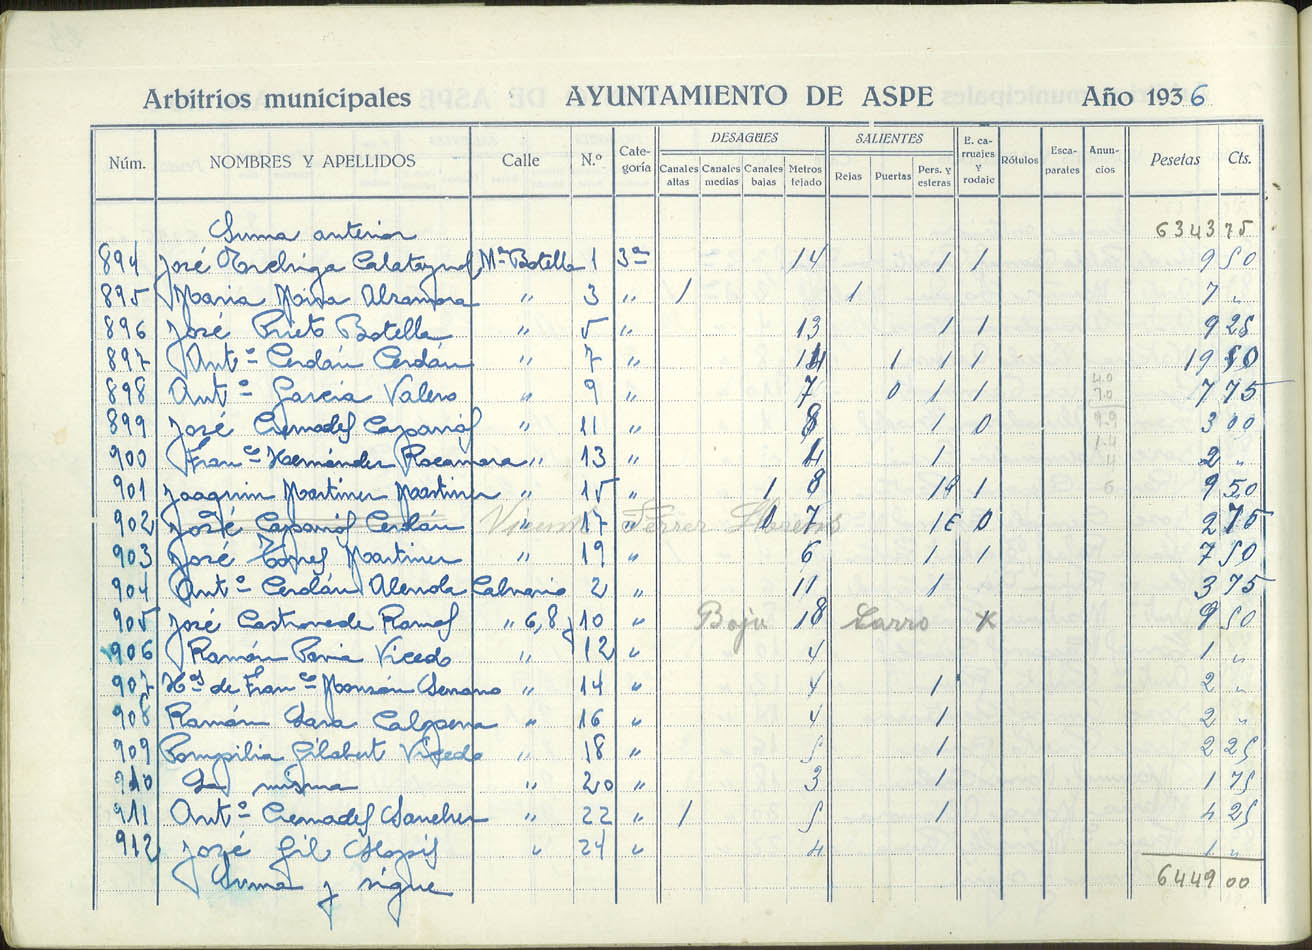 Arbitrios municipales AYUNTAMIENTO DE ASPE Año 1936
Núm. NOMBRES Y APELLIDOS Calle N.º Cate-goría DESAGÜES Canales altas Canales medias Canales bajas Metros tejado SALIENTES Rejas Puertas Pers. y esteras E. ca-rruajes y rodaje Rótulos Esca-parates Anun-cios Pesetas Cts.
Suma anterior 6343 75
894 José Calatayud Mª Botella 1 3ª 14 1 1 9 50
895 Maria Mira " 3 " 1 1 7 "
896 José Prieto Botella " 5 " 13 1 1 9 25
897 Antº Cerdán Cerdán " 7 " 14 1 1 1 19 50
898 Antº García Valero " 9 " 7 0 1 1 7 75
899 José Cremades Caparrós " 11 " 8 1 0 3 00
900 Franco Hernández Rocamora " 13 " 4 1 2 "
901 Joaquin Martinez Martinez " 15 " 1 8 1 1 9 50
902 José Caparrós Cerdán Vicente Ferrer Llorens " 17 " 7 1 0 2 75
903 José Martinez " 19 " 6 1 1 7 50
904 Antº Cerdán Calvario 2 " 11 1 3 75
905 José Castroverde Ramos " 6, 8 y 10 " Baja 18 Carro X 9 50
906 Ramón Pavia Vicedo " 12 " 4 1 "
907 Hºs de Franco Monzón Serrano " 14 " 4 1 2 "
908 Ramón Calpena " 16 " 4 1 2 "
909 Pompilia Gilabert Vicedo " 18 " 5 1 2 25
910 La misma " 20 " 3 1 1 75
911 Antº Cremades Sanchez " 22 " 1 5 1 4 25
912 José Gil " 24 " 4 1 "
Suma y sigue 6449 00